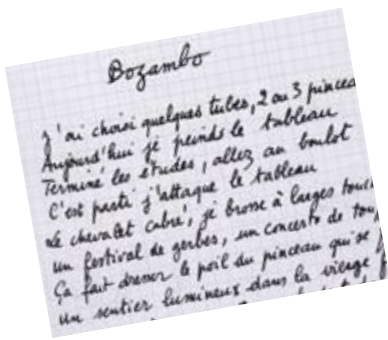 Bozambo
J'ai choisi quelques tubes, 2 ou 3 pinceau
Aujourd'hui je peinds le tableau
Terminé les études, allez au boulot
C'est parti j'attaque le tableau
Le chevalet cabré, je brosse à larges touc
un festival de gerbes, un concerto de ton
Ça fait dresser le poil du pinceau qui se
un sentier lumineux dans la vierge